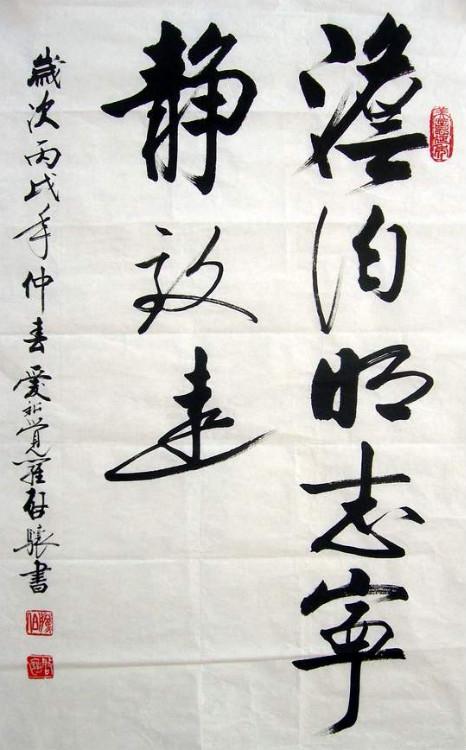 澹泊明志寧
静致遠
歲次丙戌年仲春愛新覺羅啟驤書